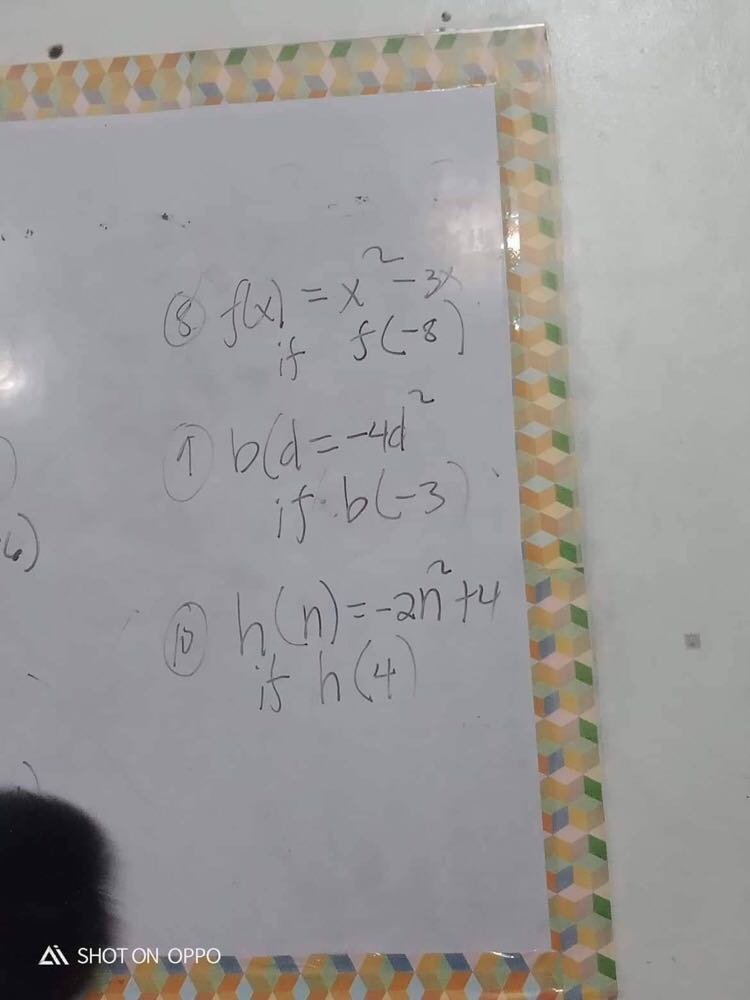 ⑧ f(x) = x² - 3x
if f(-8)
⑨ b(d = -4d²
if b(-3)
⑩ h(n) = -2n² + 4
if h(4)
6)
SHOT ON OPPO